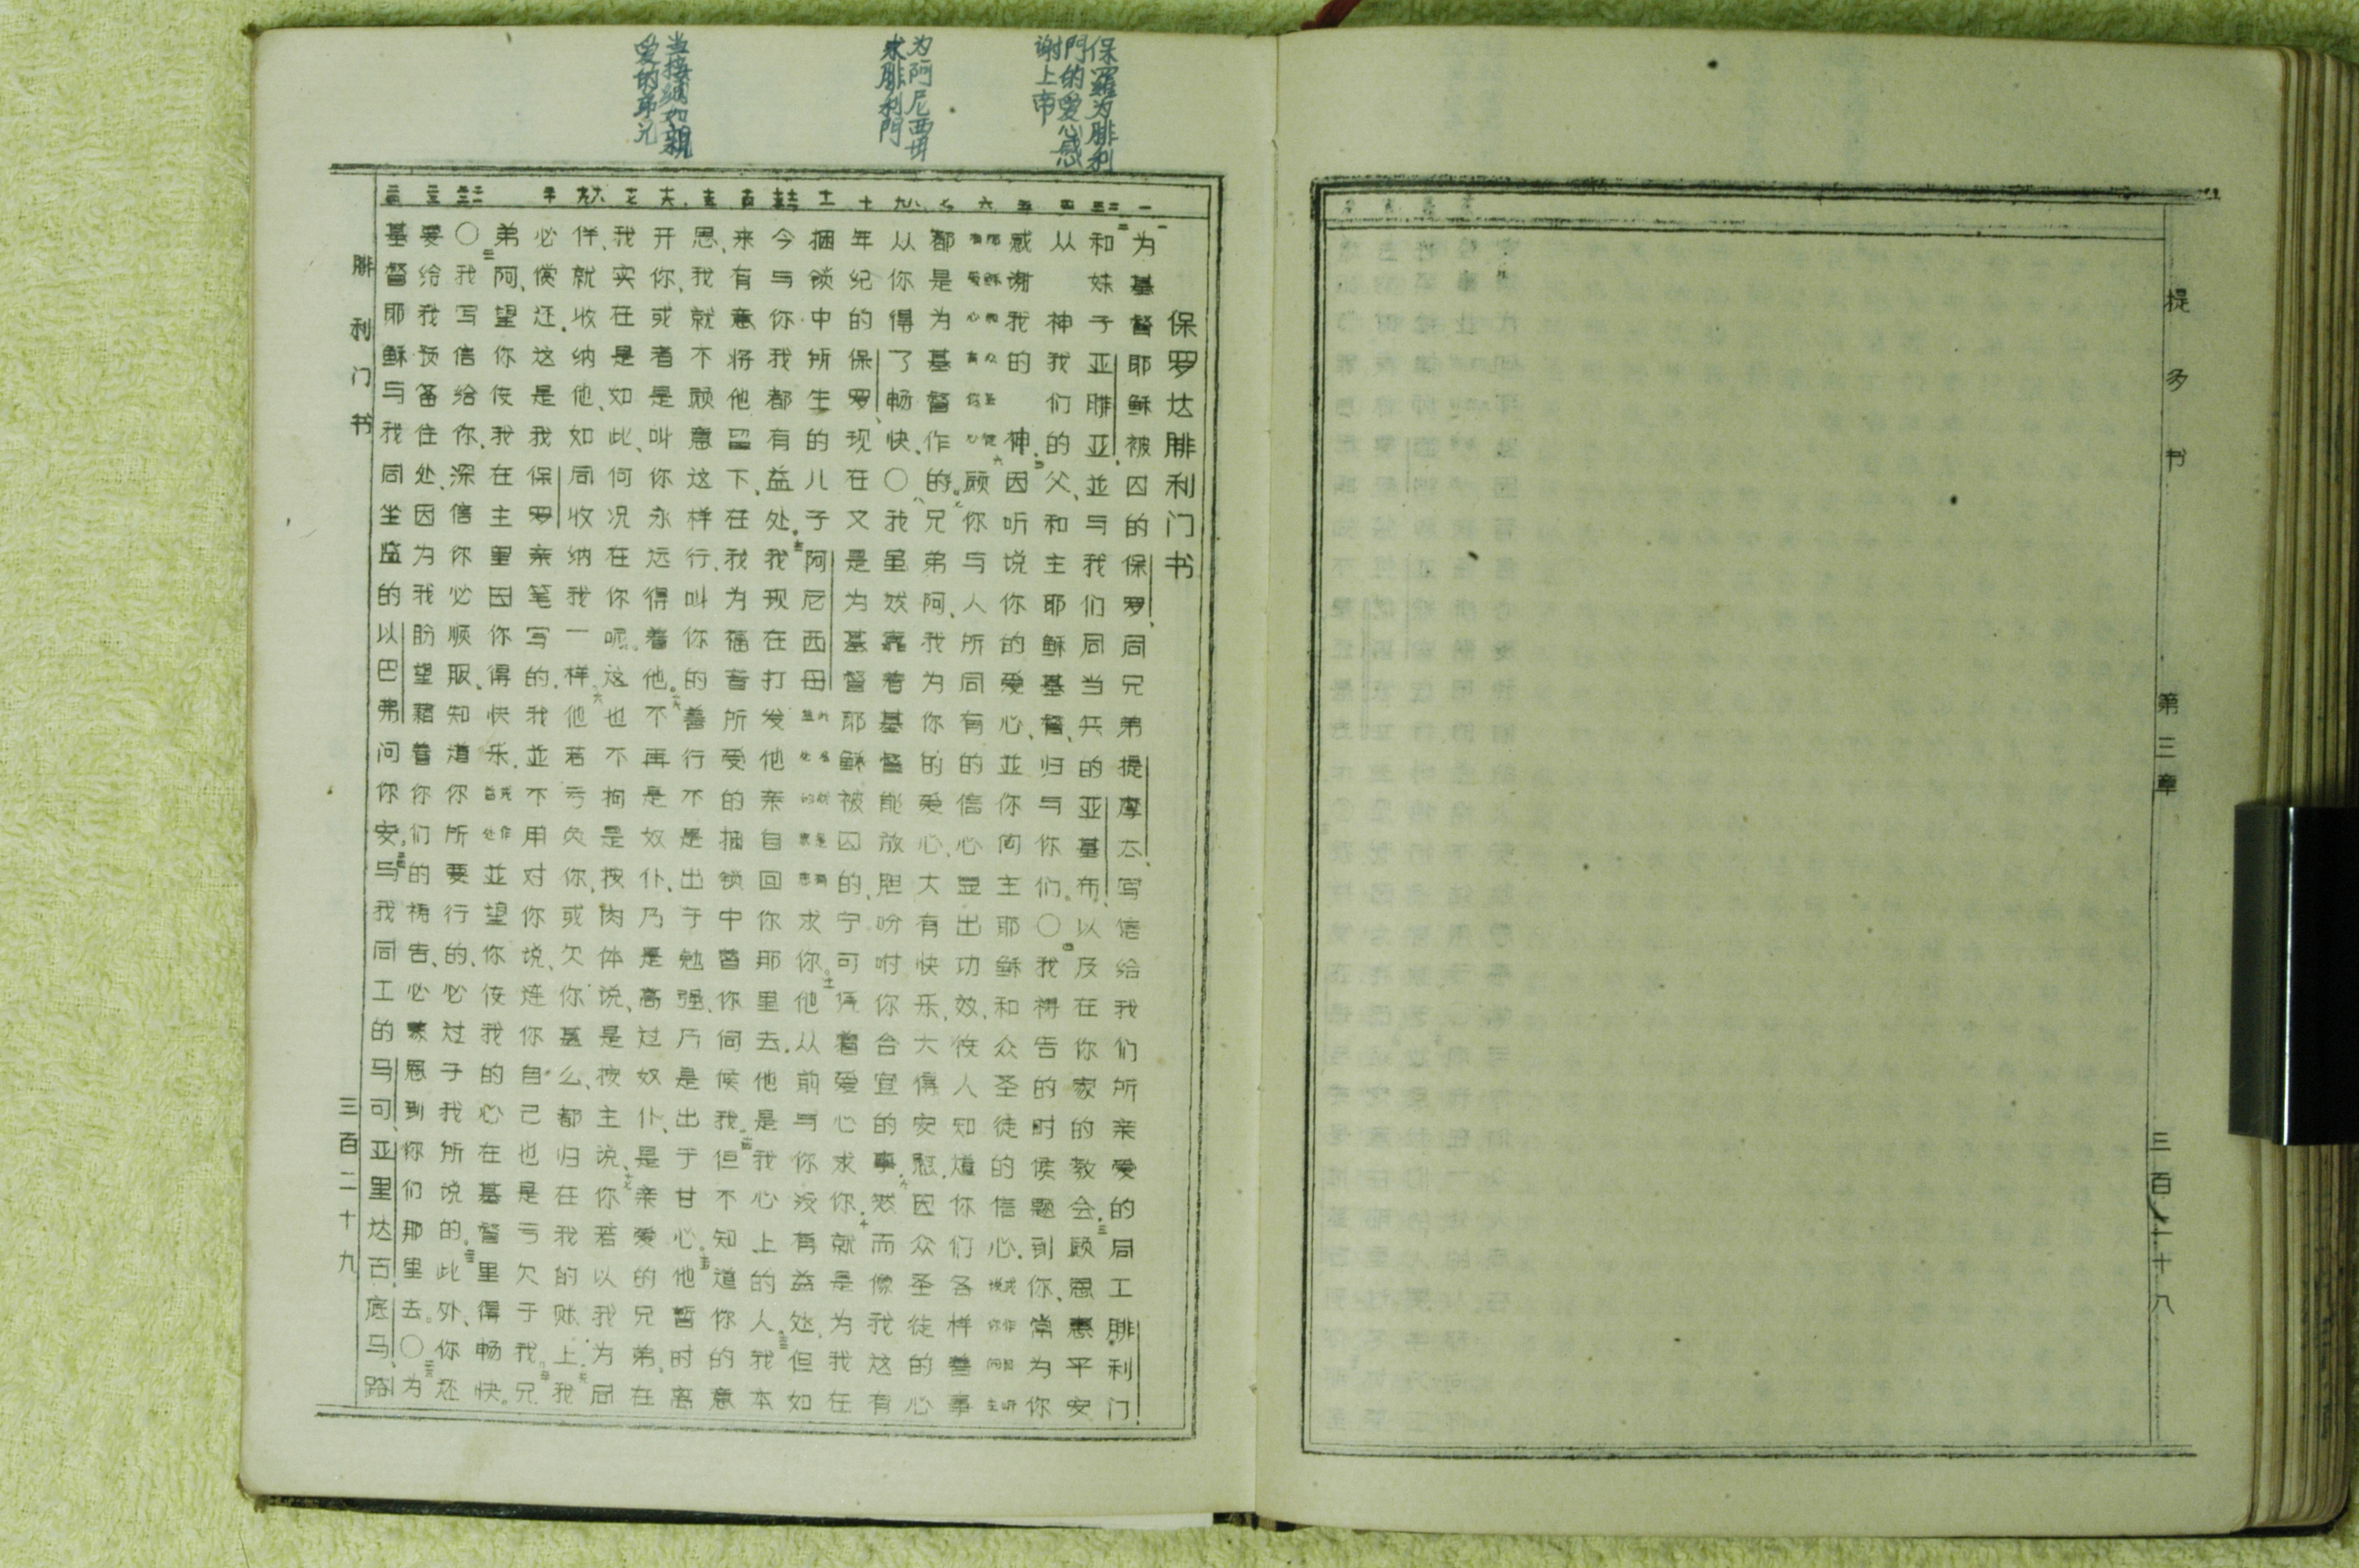 提多书 第三章 三百二十八
保羅为腓利
門的愛心感
谢上帝
为阿尼西母
求腓利門
当接纳如親
愛的弟兄
保罗达腓利门书
为基督耶稣被囚的保罗、同兄弟提摩太、写信给我们所亲爱的同工腓利门、
二和妹子亚腓亚、並与我们同当兵的亚基布、以及在你家的教会。三愿恩惠平安
从 神我们的父、和主耶稣基督、归与你们。〇四我祷告的时候题到你、常为你
感谢我的 神、五因听说你的爱心、並你向主耶稣和众圣徒的信心、或作听说你向主
耶稣和众圣徒有爱心有信心六愿你与人所同有的信心显出功效、使人知道你们各样善事
都是为基督作的。七兄弟阿、我为你的爱心、大有快乐、大得安慰、因众圣徒的心
从你得了畅快。〇八我虽然靠着基督能放胆吩咐你合宜的事、九然而像我这有
年纪的保罗、现在又是为基督耶稣被囚的、宁可凭着爱心求你、十就是为我在
捆锁中所生的儿子阿尼西母此名就是有益处的意思求你。十一他从前与你没有益处、但如
今与你我都有益处。十二我现在打发他亲自回你那里去。他是我心上的人。十三我本
来有意将他留下、在我为福音所受的捆锁中替你伺候我。十四但不知道你的意
思、我就不愿意这样行、叫你的善行不是出于勉强、乃是出于甘心。十五他暂时离
开你、或者是叫你永远得着他。十六不再是奴仆、乃是高过奴仆、是亲爱的兄弟、在
我实在是如此、何况在你呢。这也不拘是按肉体说、是按主说、十七你若以我为同
伴、就收纳他、如同收纳我一样。十八他若亏负你、或欠你甚么、都归在我的账上、十九我
必偿还、这是我保罗亲笔写的。我並不用对你说、连你自己也是亏欠于我。二十兄
弟阿、望你使我在主里因你得快乐、並望你使我的心在基督里得畅快。
〇二十一我写信给你、深信你必顺服、知道你所要行的、必过于我所说的。二十二此外、你还
要给我预备住处、因为我盼望藉着你们的祷告、必蒙恩到你们那里去。〇二十三为
基督耶稣与我同坐监的以巴弗问你安。二十四与我同工的马可、亚里达古、底马、路
腓利门书 三百二十九